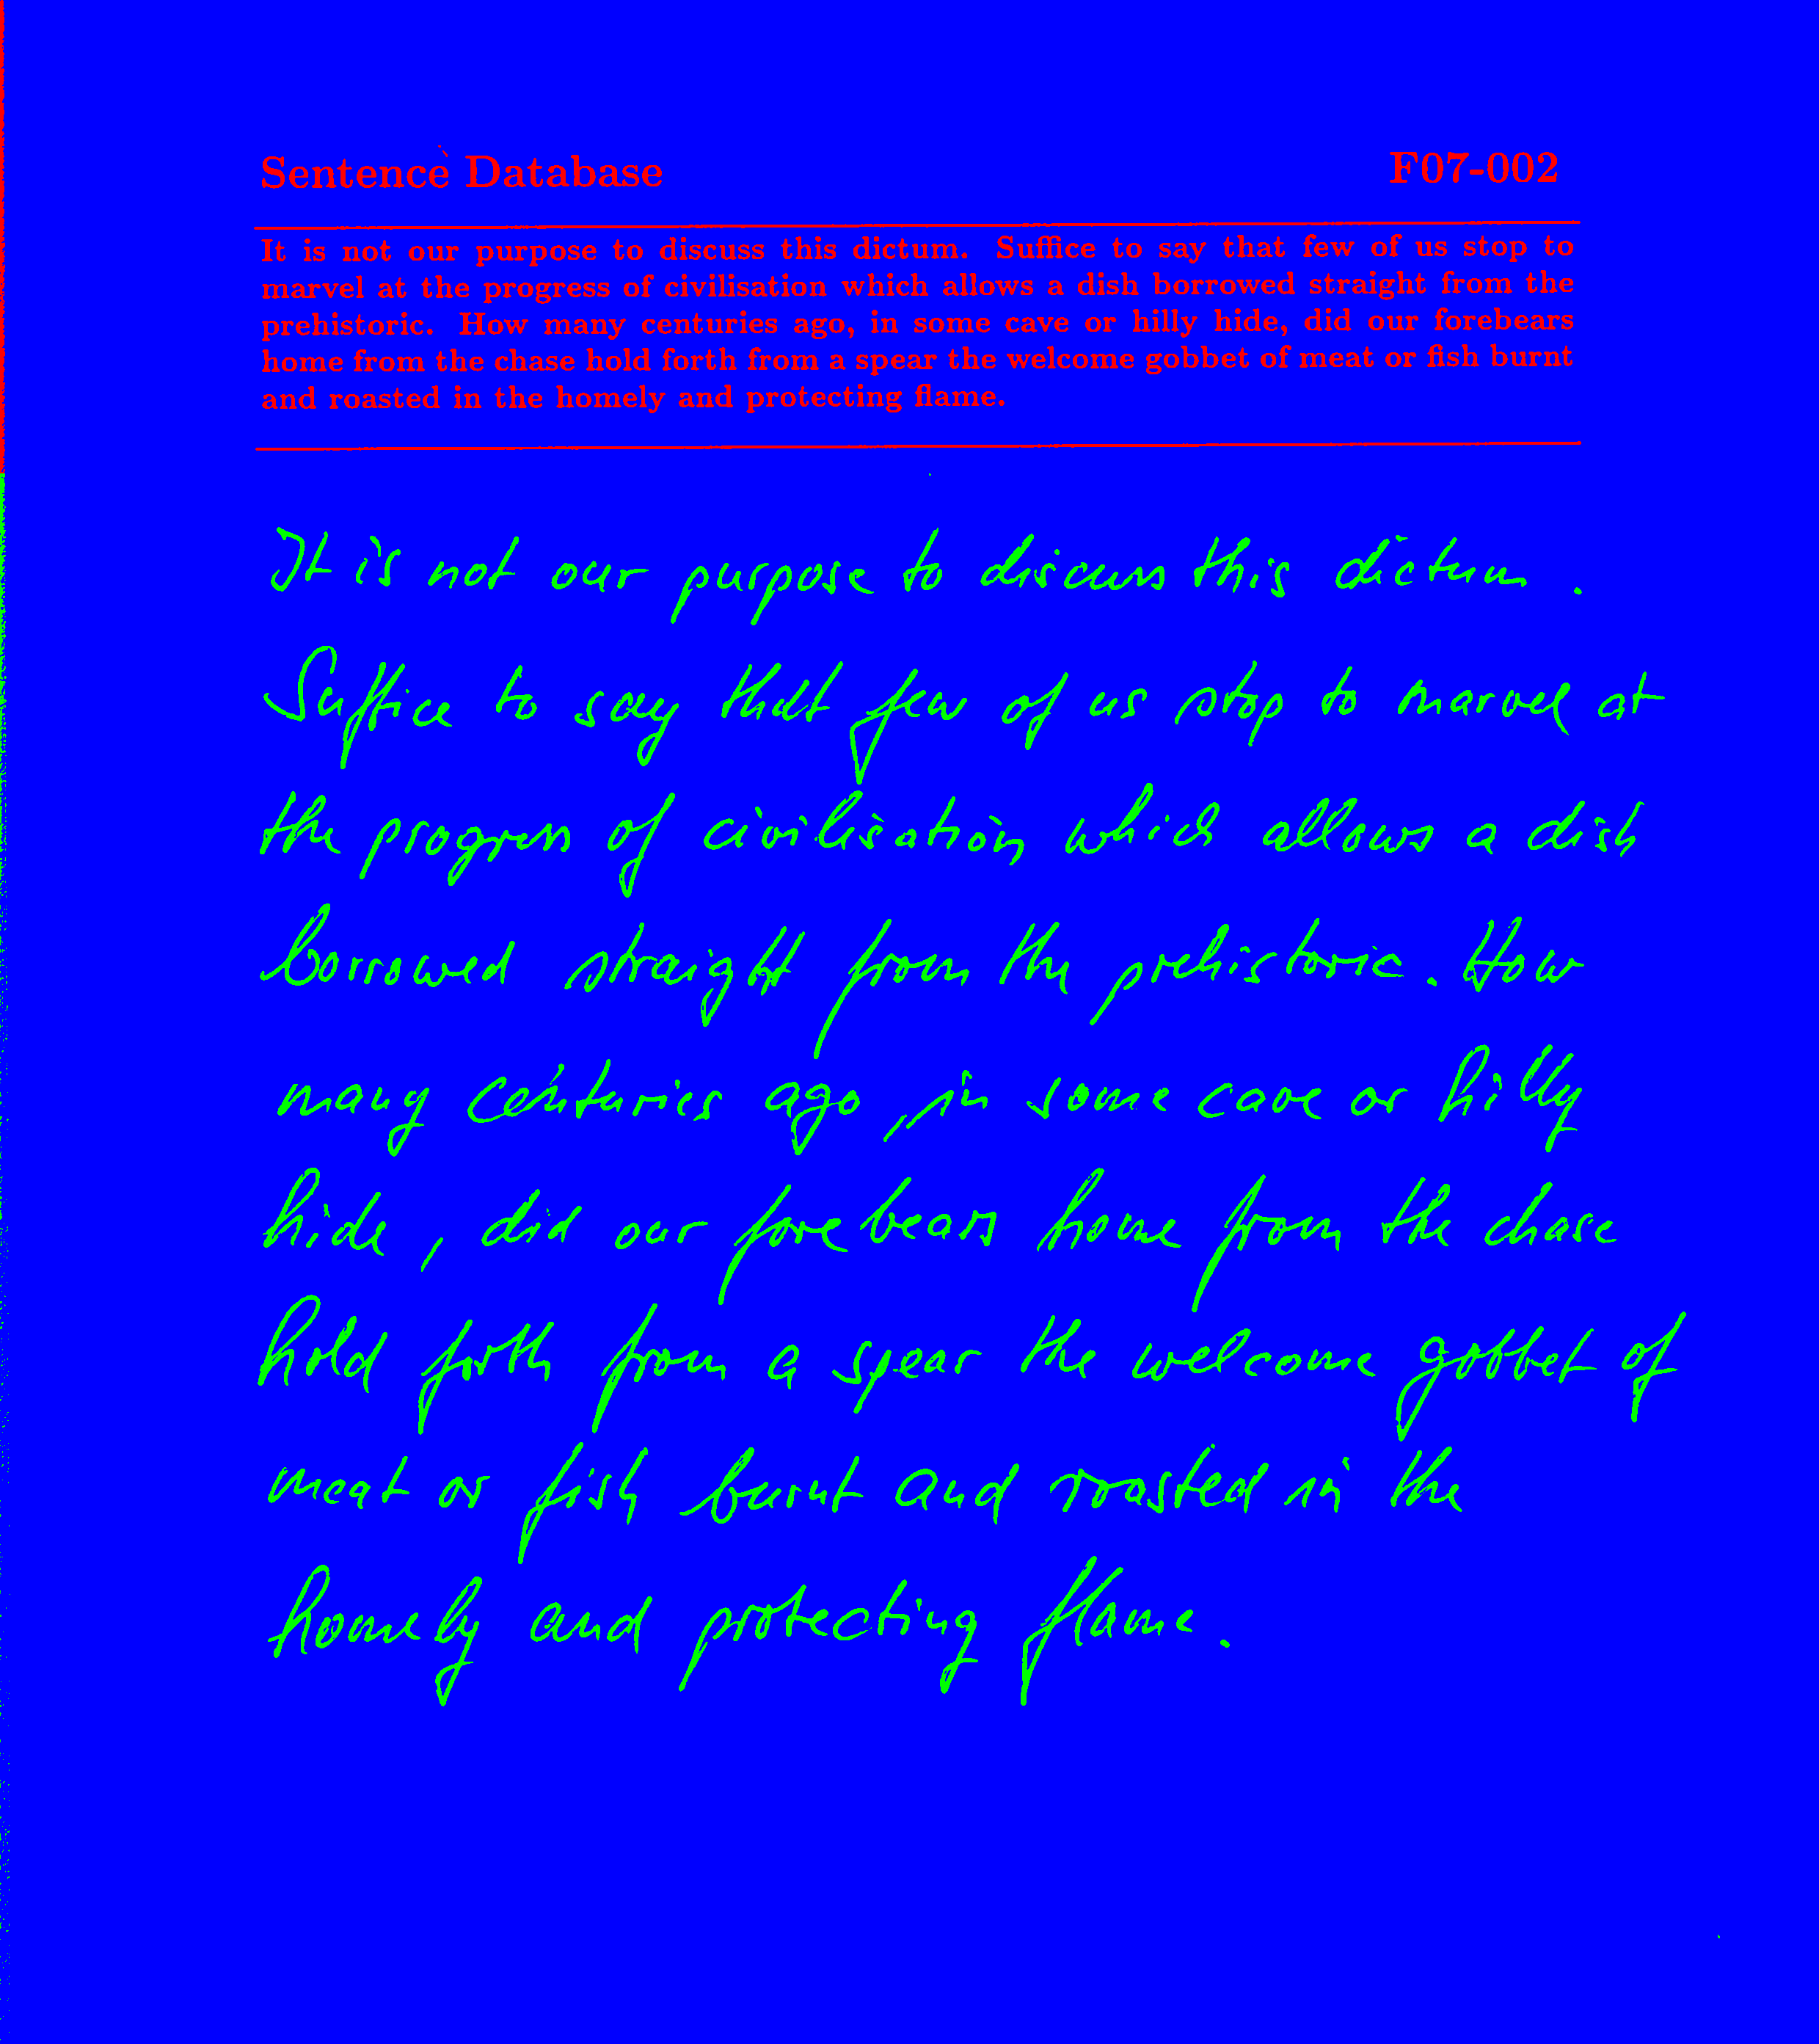 Sentence Database F07-002
It is not our purpose to discuss this dictum. Suffice to say that few of us stop to
marvel at the progress of civilisation which allows a dish borrowed straight from the
prehistoric. How many centuries ago, in some cave or hilly hide, did our forebears
home from the chase hold forth from a spear the welcome gobbet of meat or fish burnt
and roasted in the homely and protecting flame.
It is not our purpose to discuss this dictum.
Suffice to say that few of us stop to marvel at
the progress of civilisation which allows a dish
borrowed straight from the prehistoric. How
many centuries ago, in some cave or hilly
hide, did our forebears home from the chase
hold forth from a spear the welcome gobbet of
meat or fish burnt and roasted in the
homely and protecting flame.